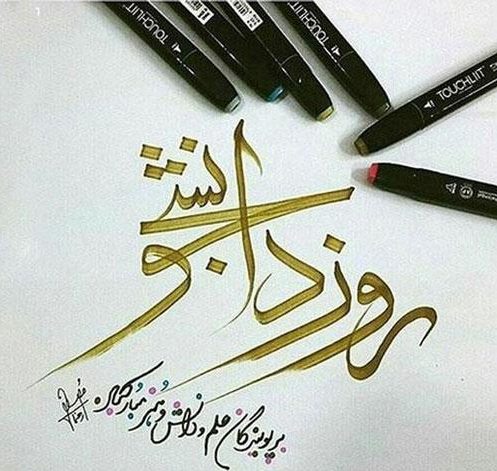 روز دانشجو
بر پویندگان علم و دانش و هنر مبارکباد
TOUCHLIIT
TOUCHLIIT
TOUCHLIIT
TOUCHLIIT